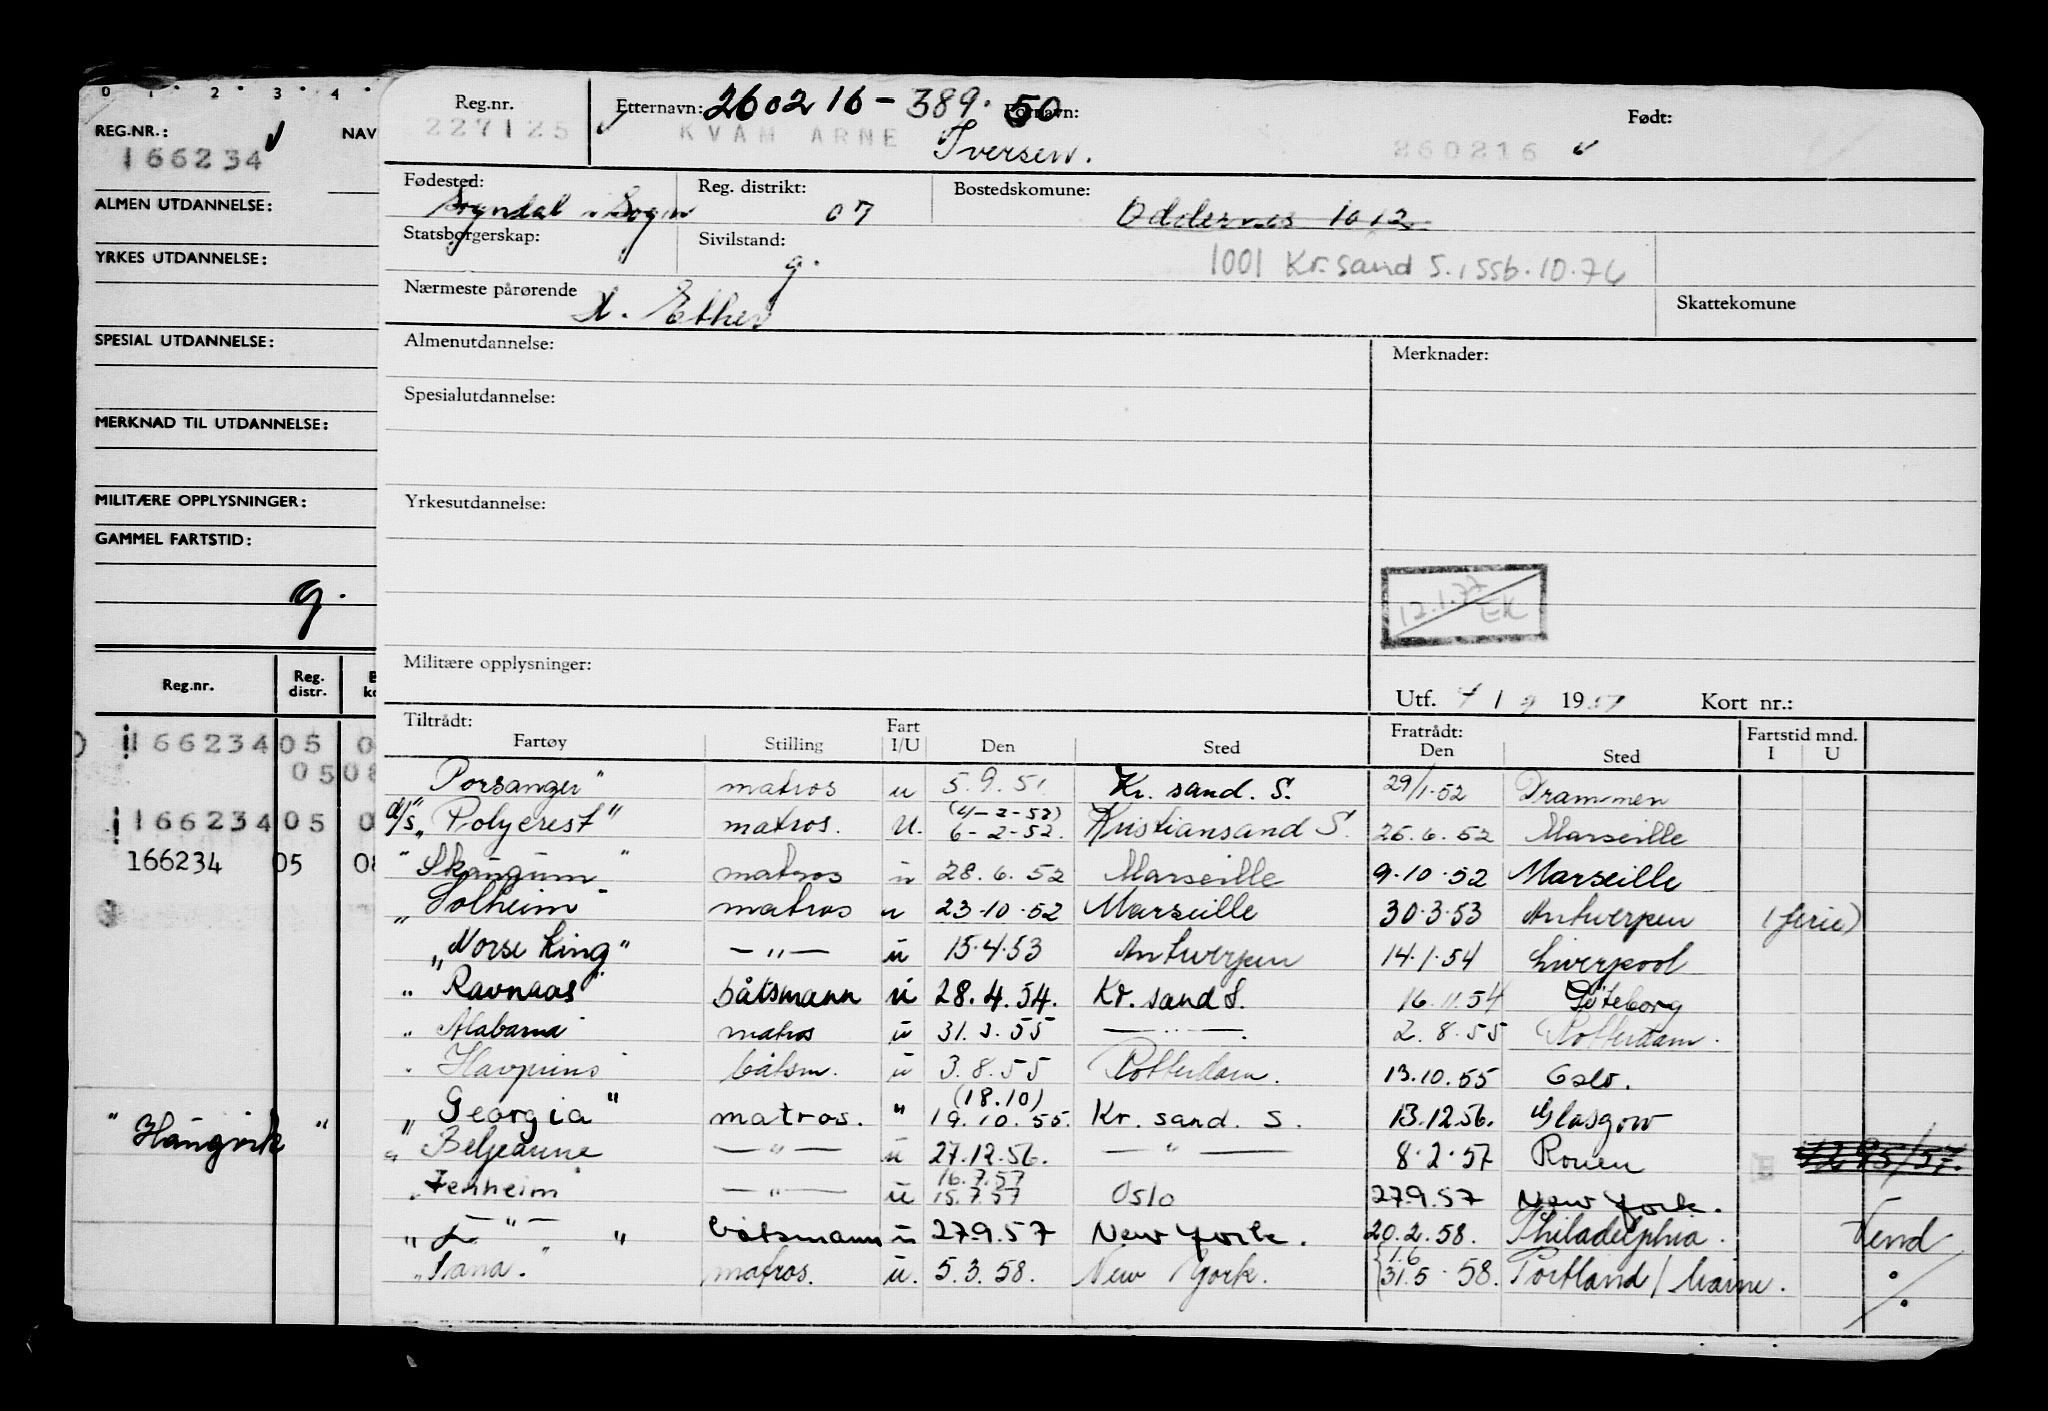 0 1 . 2 . 3 . 4 .
REG.NR.: NAV
166234
ALMEN UTDANNELSE:
YRKES UTDANNELSE:
SPESIAL UTDANNELSE:
MERKNAD TIL UTDANNELSE:
MILITÆRE OPPLYSNINGER:
GAMMEL FARTSTID:
g.
Reg.nr. Reg. distr.
166234 05 0
05 08
166234 05 0
166234 05 08
" Haugvik "
Reg.nr. Etternavn: 260216-389.50 Fornavn: Født:
227125 KVAM ARNE Iversen. 260216
Fødested: Reg. distrikt: Bostedskomune:
Sogndal i Sogn 07 Oddernes 1012
Statsborgerskap: Sivilstand:
g. 1001 Kr.sand S. 1556.10.76
Nærmeste pårørende Skattekomune
Almenutdannelse: Merknader:
Spesialutdannelse:
Yrkesutdannelse:
12.1.77 EK
Militære opplysninger:
Utf. 7 / 9 1951 Kort nr.:
Tiltrådt: Fart Fratrådt: Fartstid mnd.
Fartøy Stilling I/U Den Sted Den Sted I U
Porsanger" matros u 5.9.51 Kr. sand. S. 29/1.52 Drammen
d/s "Polycrest" matros. U. (4-2-52) 6-2-52. Kristiansand S. 25.6.52 Marseille
" Skaugum " matros u 28.6.52 Marseille 9.10.52 Marseille
" Solheim " matros u 23.10.52 Marseille 30.3.53 Antwerpen (ferie)
"Norse King" — " — u 15.4.53 Antwerpen 14.1.54 Liverpool
" Ravnaas" båtsmann u 28.4.54. Kr. sand S. 16.11.54 Göteborg
" Alabama matros u 31.3.55 — " — 2.8.55 Rotterdam.
" Havprins båtsm. u 3.8.55 Rotterdam. 13.10.55 Oslo.
" Georgia" matros. " (18.10) 19.10.55. Kr. sand. S. 13.12.56. Glasgow
" Beljeanne — " — u 27.12.56. — " — 8.2.57 Rouen
" Fenheim — " — u 16.7.57 15.7.57 Oslo 27.9.57 New York.
" — " — " båtsmann u 27.9.57 New York. 20.2.58. Philadelphia. Vend
" Tana." matros. u. 5.3.58. New York. 1.6 31.5.58. Portland / Maine.